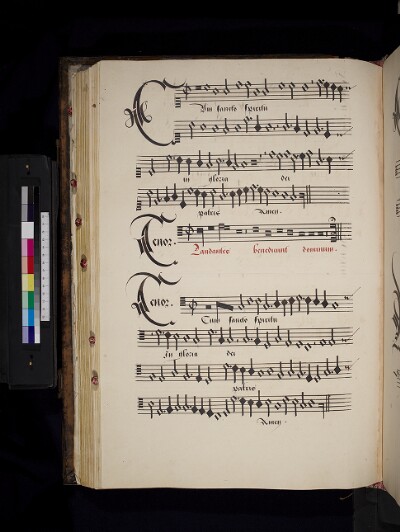 Cum sancto spiritu
in gloria dei
patris Amen.
Tenor.
Laudantes benedicunt dominum.
Tenor.
Cum sancto spiritu
in gloria dei
patris
Amen.